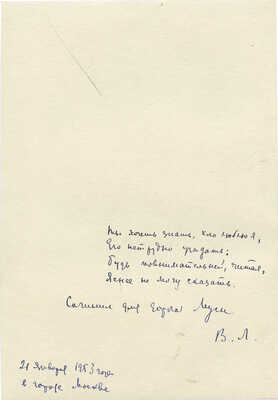 Ты хочешь знать, кого люблю я,
Его нетрудно угадать;
Будь повнимательней, читая,
Яснее не могу сказать.
Сочинил для
В. Л.
21 января 1953 года
в городе Москве